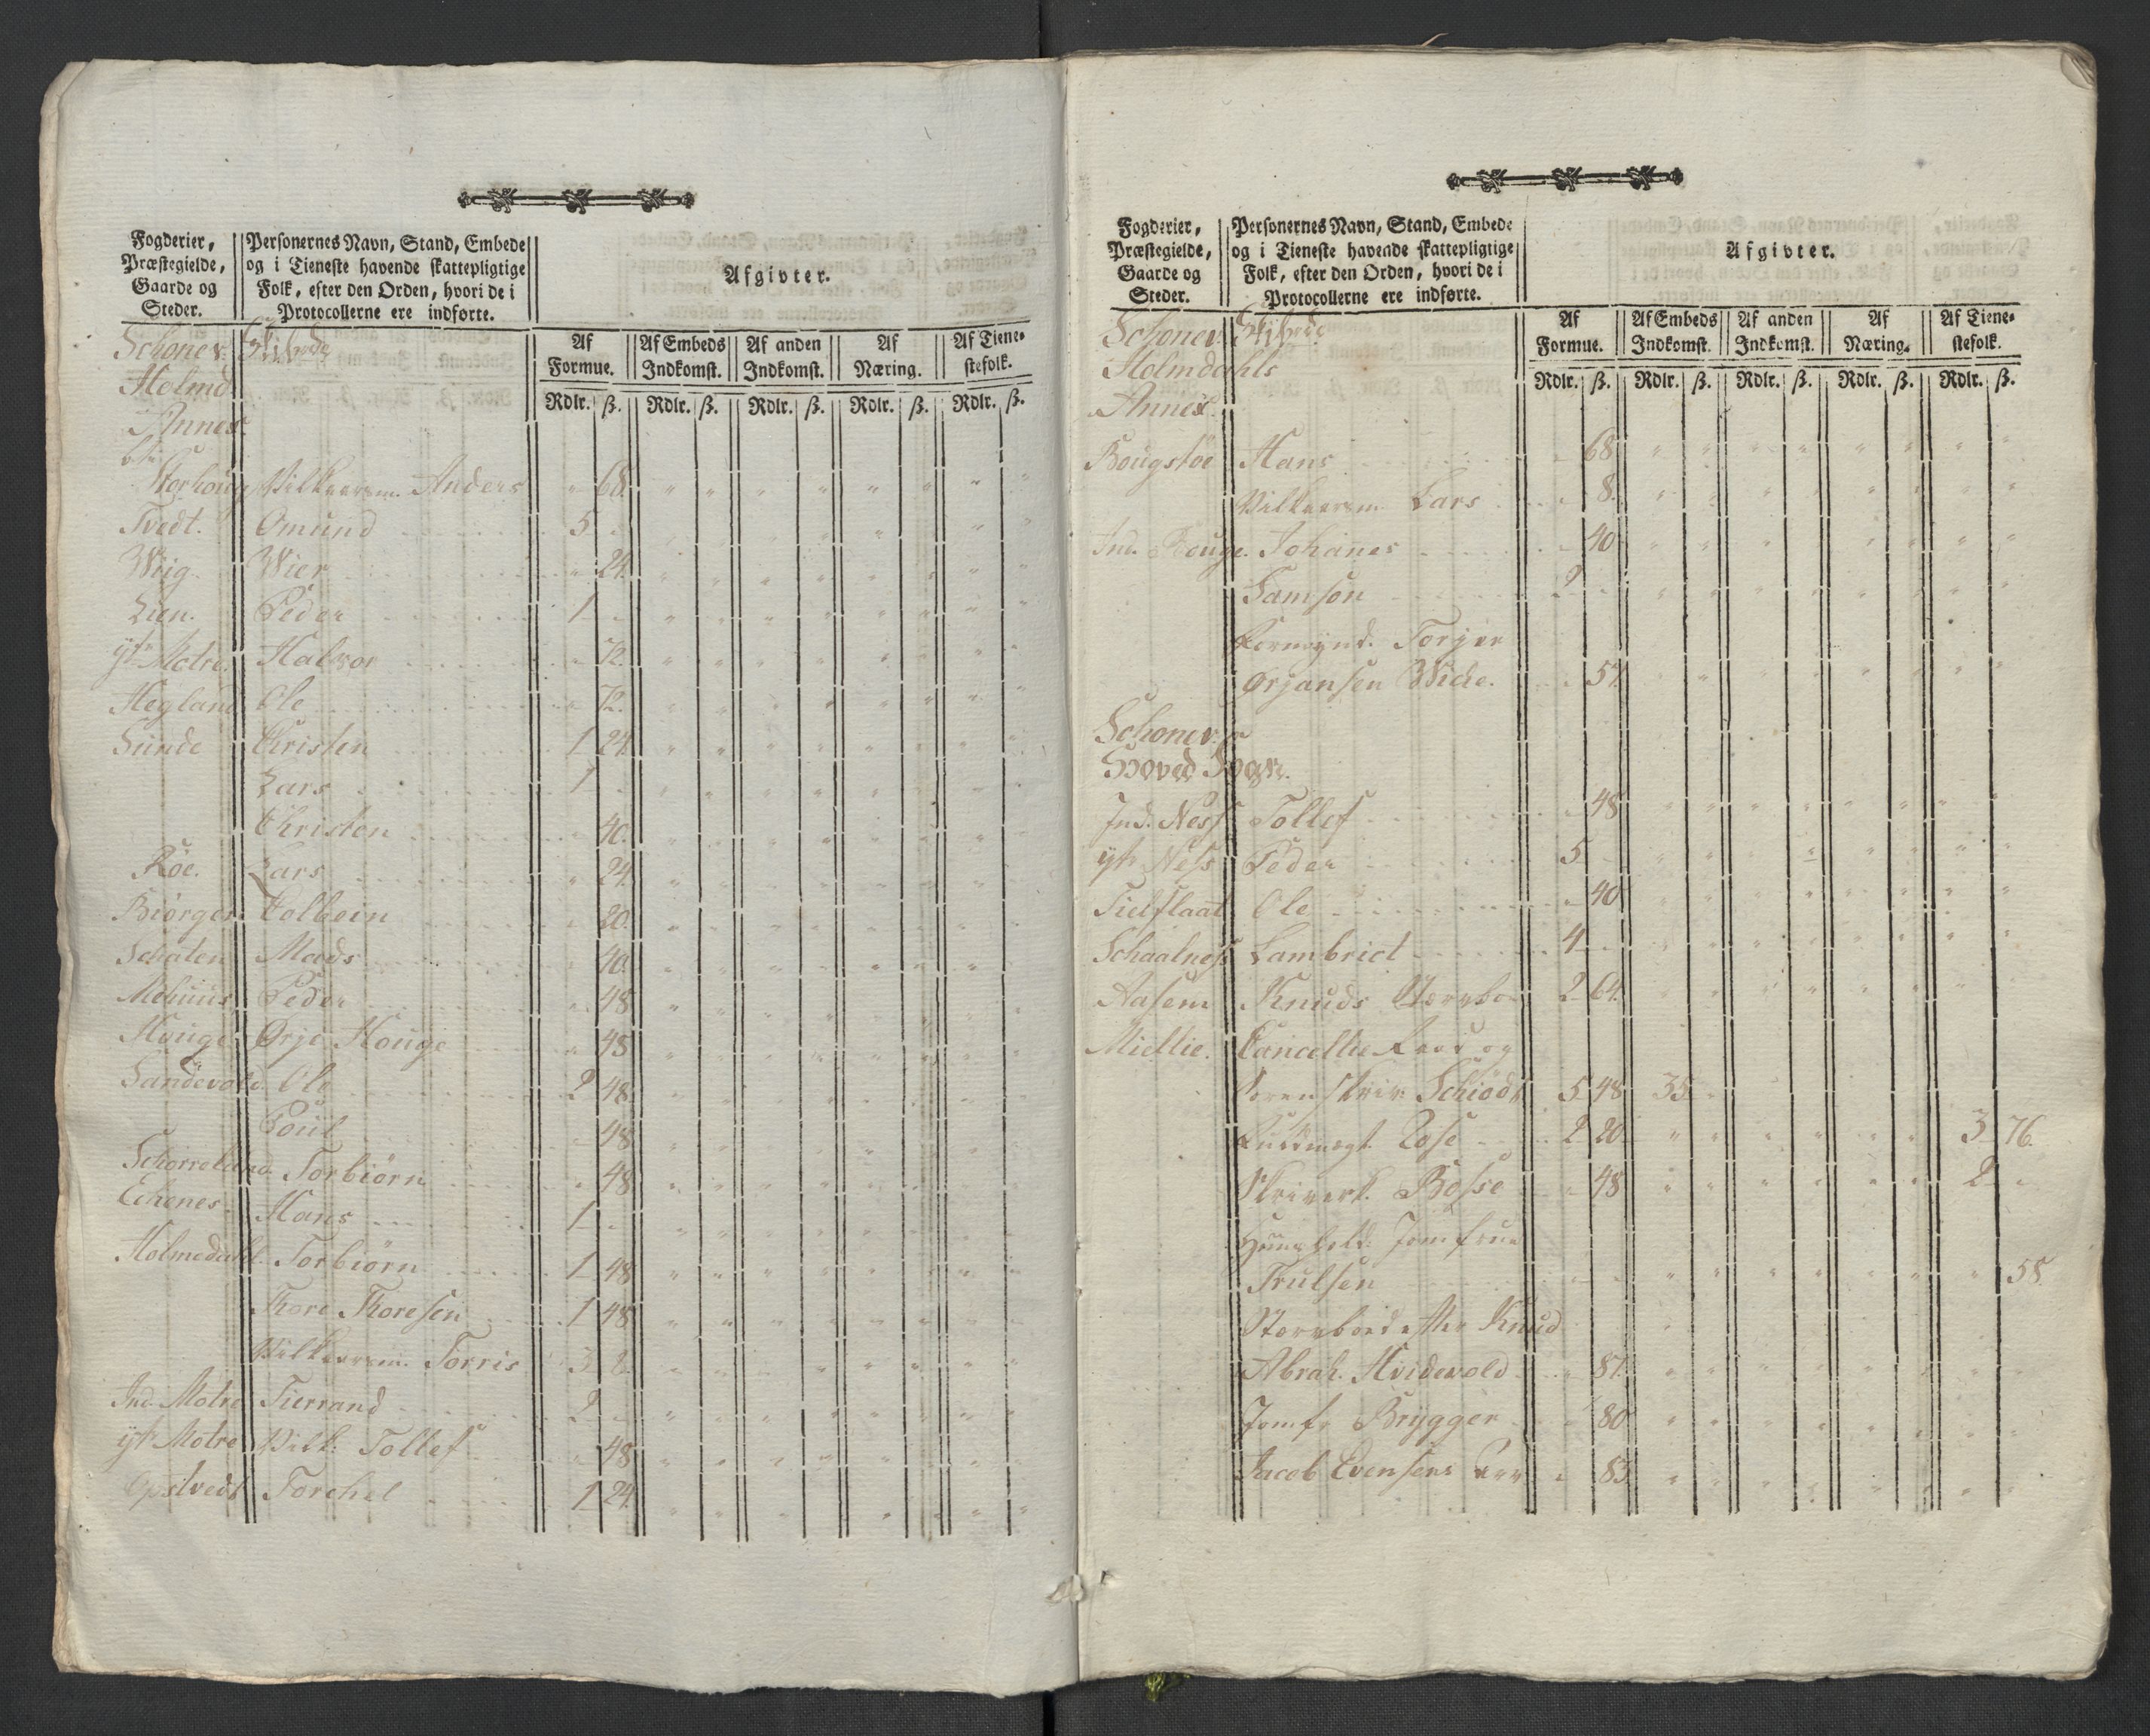 Fogderier,
Præstegielde,
Gaarde og
Steder.
Personernes Navn, Stand, Embede
og i Tieneste havende skattepligtige
Folk, efter den Orden, hvori de i
Protocollerne ere indførte.
Afgivter.
Af Formue. Af Embeds Indkomst. Af anden Indkomst. Af Næring. Af Tienestefolk.
Rdlr. ß. Rdlr. ß. Rdlr. ß. Rdlr. ß. Rdlr. ß.
Schonev:
Holmd
Annex
Storhoug Vilkaarsm. Anders " 68.
Tvedt. Omund 5 "
Wiig Wier " 24.
Lien. Peder 1 "
ytr Motre. Halvor " 72.
Hegland Ole " 72.
Sunde Christen 1 24.
Lars 1 "
Christen " 40.
Röe. Lars " 24.
Biörge Colbein " 20.
Schaten Mads " 40.
Mehuus Peder " 48
Houge Örje Houge " 48
Sandevold. Ole 2 48.
Poul " 48
Torbiörn " 48
Echenes. Hans 1 "
Holmedahl. Torbiörn 1 48
Thore Thoresen 1 48
Vilkaarsm. Torris 3 2.
Ind. Motre Tierrand 2 "
ytr Motre Vilk: Tollef " 48
Opstvedt Torchel 1 24.
Fogderier,
Præstegielde,
Gaarde og
Steder.
Personernes Navn, Stand, Embede
og i Tieneste havende skattepligtige
Folk, efter den Orden, hvori de i
Protocollerne ere indførte.
Afgivter.
Af Formue. Af Embeds Indkomst. Af anden Indkomst. Af Næring. Af Tienestefolk.
Rdlr. ß. Rdlr. ß. Rdlr. ß. Rdlr. ß. Rdlr. ß.
Schonev:
Holmdahls
Annex
Bougstöe Hans " 68
Vilkaarsm. Lars " 8.
Ind. Houge. Johanes " 40
Samson 2 "
Formynd. Torjer
Ørjansen Wicke. " 57.
Schonev:
Hoved Sogn.
Ind. Ness Tollef " 48
ytr Ness Peder 5 "
Tielflaat Ole " 40
Schaalness Lambrict 4 "
Aasem Knuds Stervboe 2 64.
Miellie. Cancellie Raad og
Sorenskriv: Schiödt 5 48 35 "
Fuldmægt. Rose 2 20 3 76.
Skriverk. Bosse " 48 2 "
Huusholds Jomfrue
Trulsen " 58
Stervboed efter Knud
Abrah. Hvidevold " 87.
Jomfr Brygger " 80
Jacob Evensens " 83